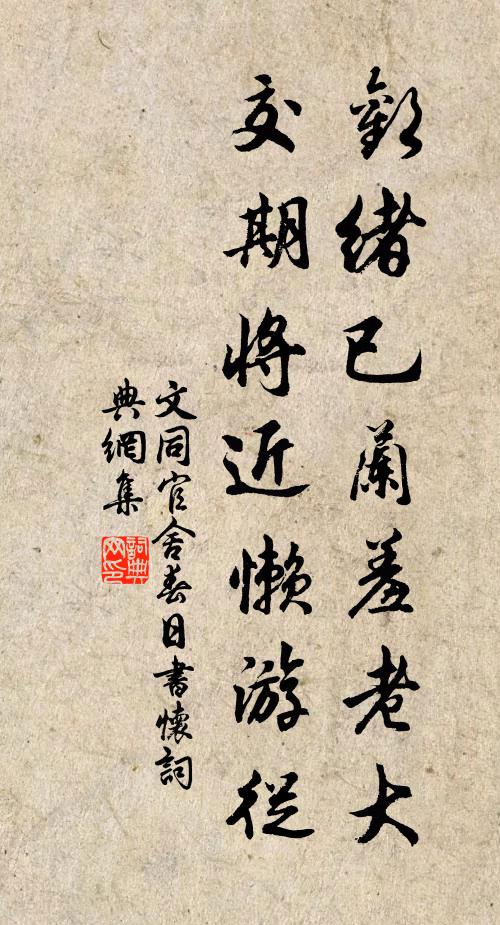 歡緒已蘭羞老大
交期將近懶游從
文同官舍春日書懷詞
典網集
詞典
网印